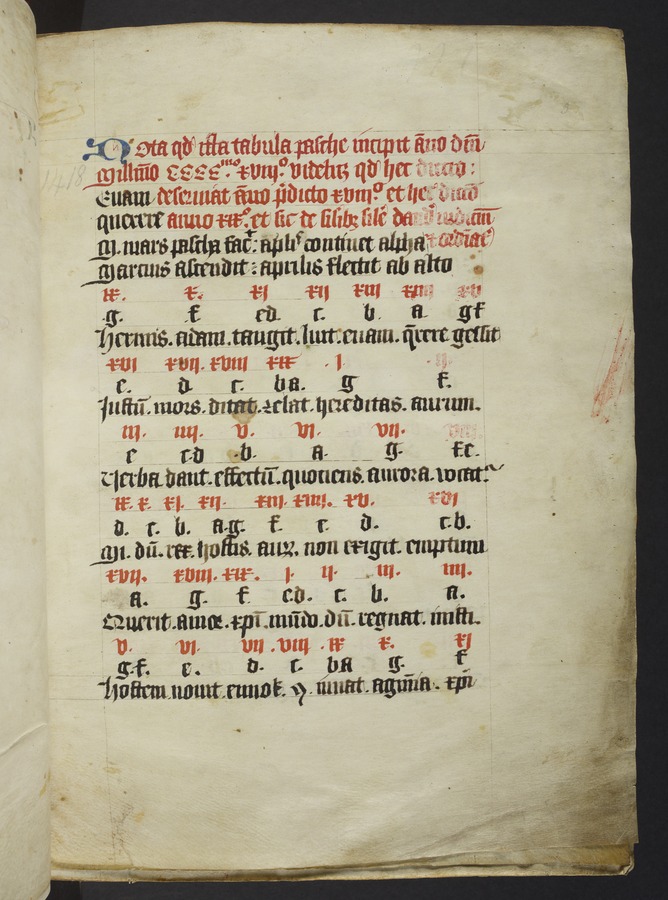 Nota qd ista tabula pasche incipit āno dm̄
Millmo CCCC.mo xviij.o videlitz qd hec dictio :
Euam deseruiat āno p̄dicto xviij.o et hec dictio
querere anno xix.o et sic de silibz
M. mars pascha fac̄ : aplis continet alpha
Marcius ascendit : aprilis flectit ab alto
ix. x. xi xij xiij xiiij xv
.g. f ed c. b. a gf
hermis. adam. taugit. liuit. euam. q̄rere gessit
xvi xvij. xviij xix . j . ij.
e. d. c. ba. g f.
Justū. mors. ditat. zelat. hereditas. aurum.
iij. iiij. v. vi. vij. viij.
e cd .b. a. g. fe.
Verba. dant. effectū. quociens. aurora. vocat.
ix. x. xi. xij. xiij. xiiij. xv. xvi
d. c. b. a.g. f. e. d. c.b.
M. dū. rex. hostis. aux. non exigit. emptum
xvij. xviij. xix. j. ij. iij. iiij.
a. g. f e.d. c. b. a.
Querit. amor. xp̄i. mūdo. dū. regnat. iusti.
v. vi. vij . viij . ix x. xi
g.f. e. d. c. ba g. f
hostem nouit ennok. iuuat. agmīa. xp̄i